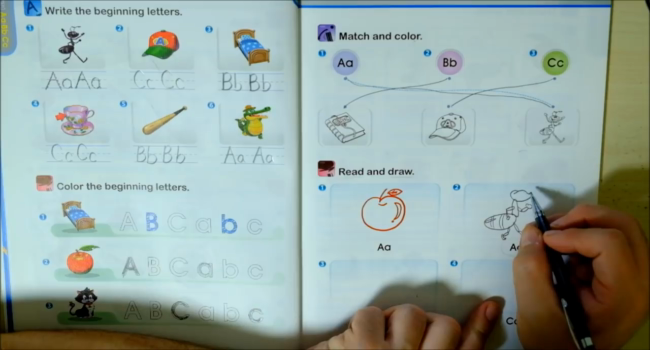 A Write the beginning letters.
1 2 3
AaAa Cc Cc Bb Bb
4 5 6
Cc Cc Bb Bb Aa Aa
Color the beginning letters.
1 A B C a b c
2 A B C a b c
3 A B C a b c
Match and color.
1 Aa 2 Bb 3 Cc
Read and draw.
1 2
Aa
3 4